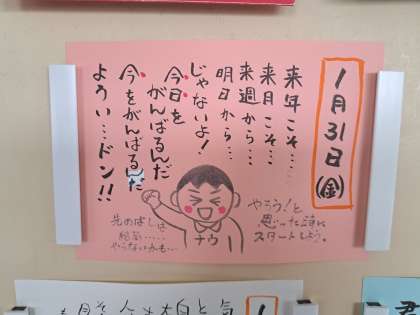 1月31日(金)
来年こそ……
来月こそ…
来週から…
明日から…
じゃないよ！
今日を
がんばるんだ
今をがんばるんだ
ようい…ドン!!
やろう！と
思った時に
スタートしよう。
ナウ
先のばしは
結局……
やらないかも…